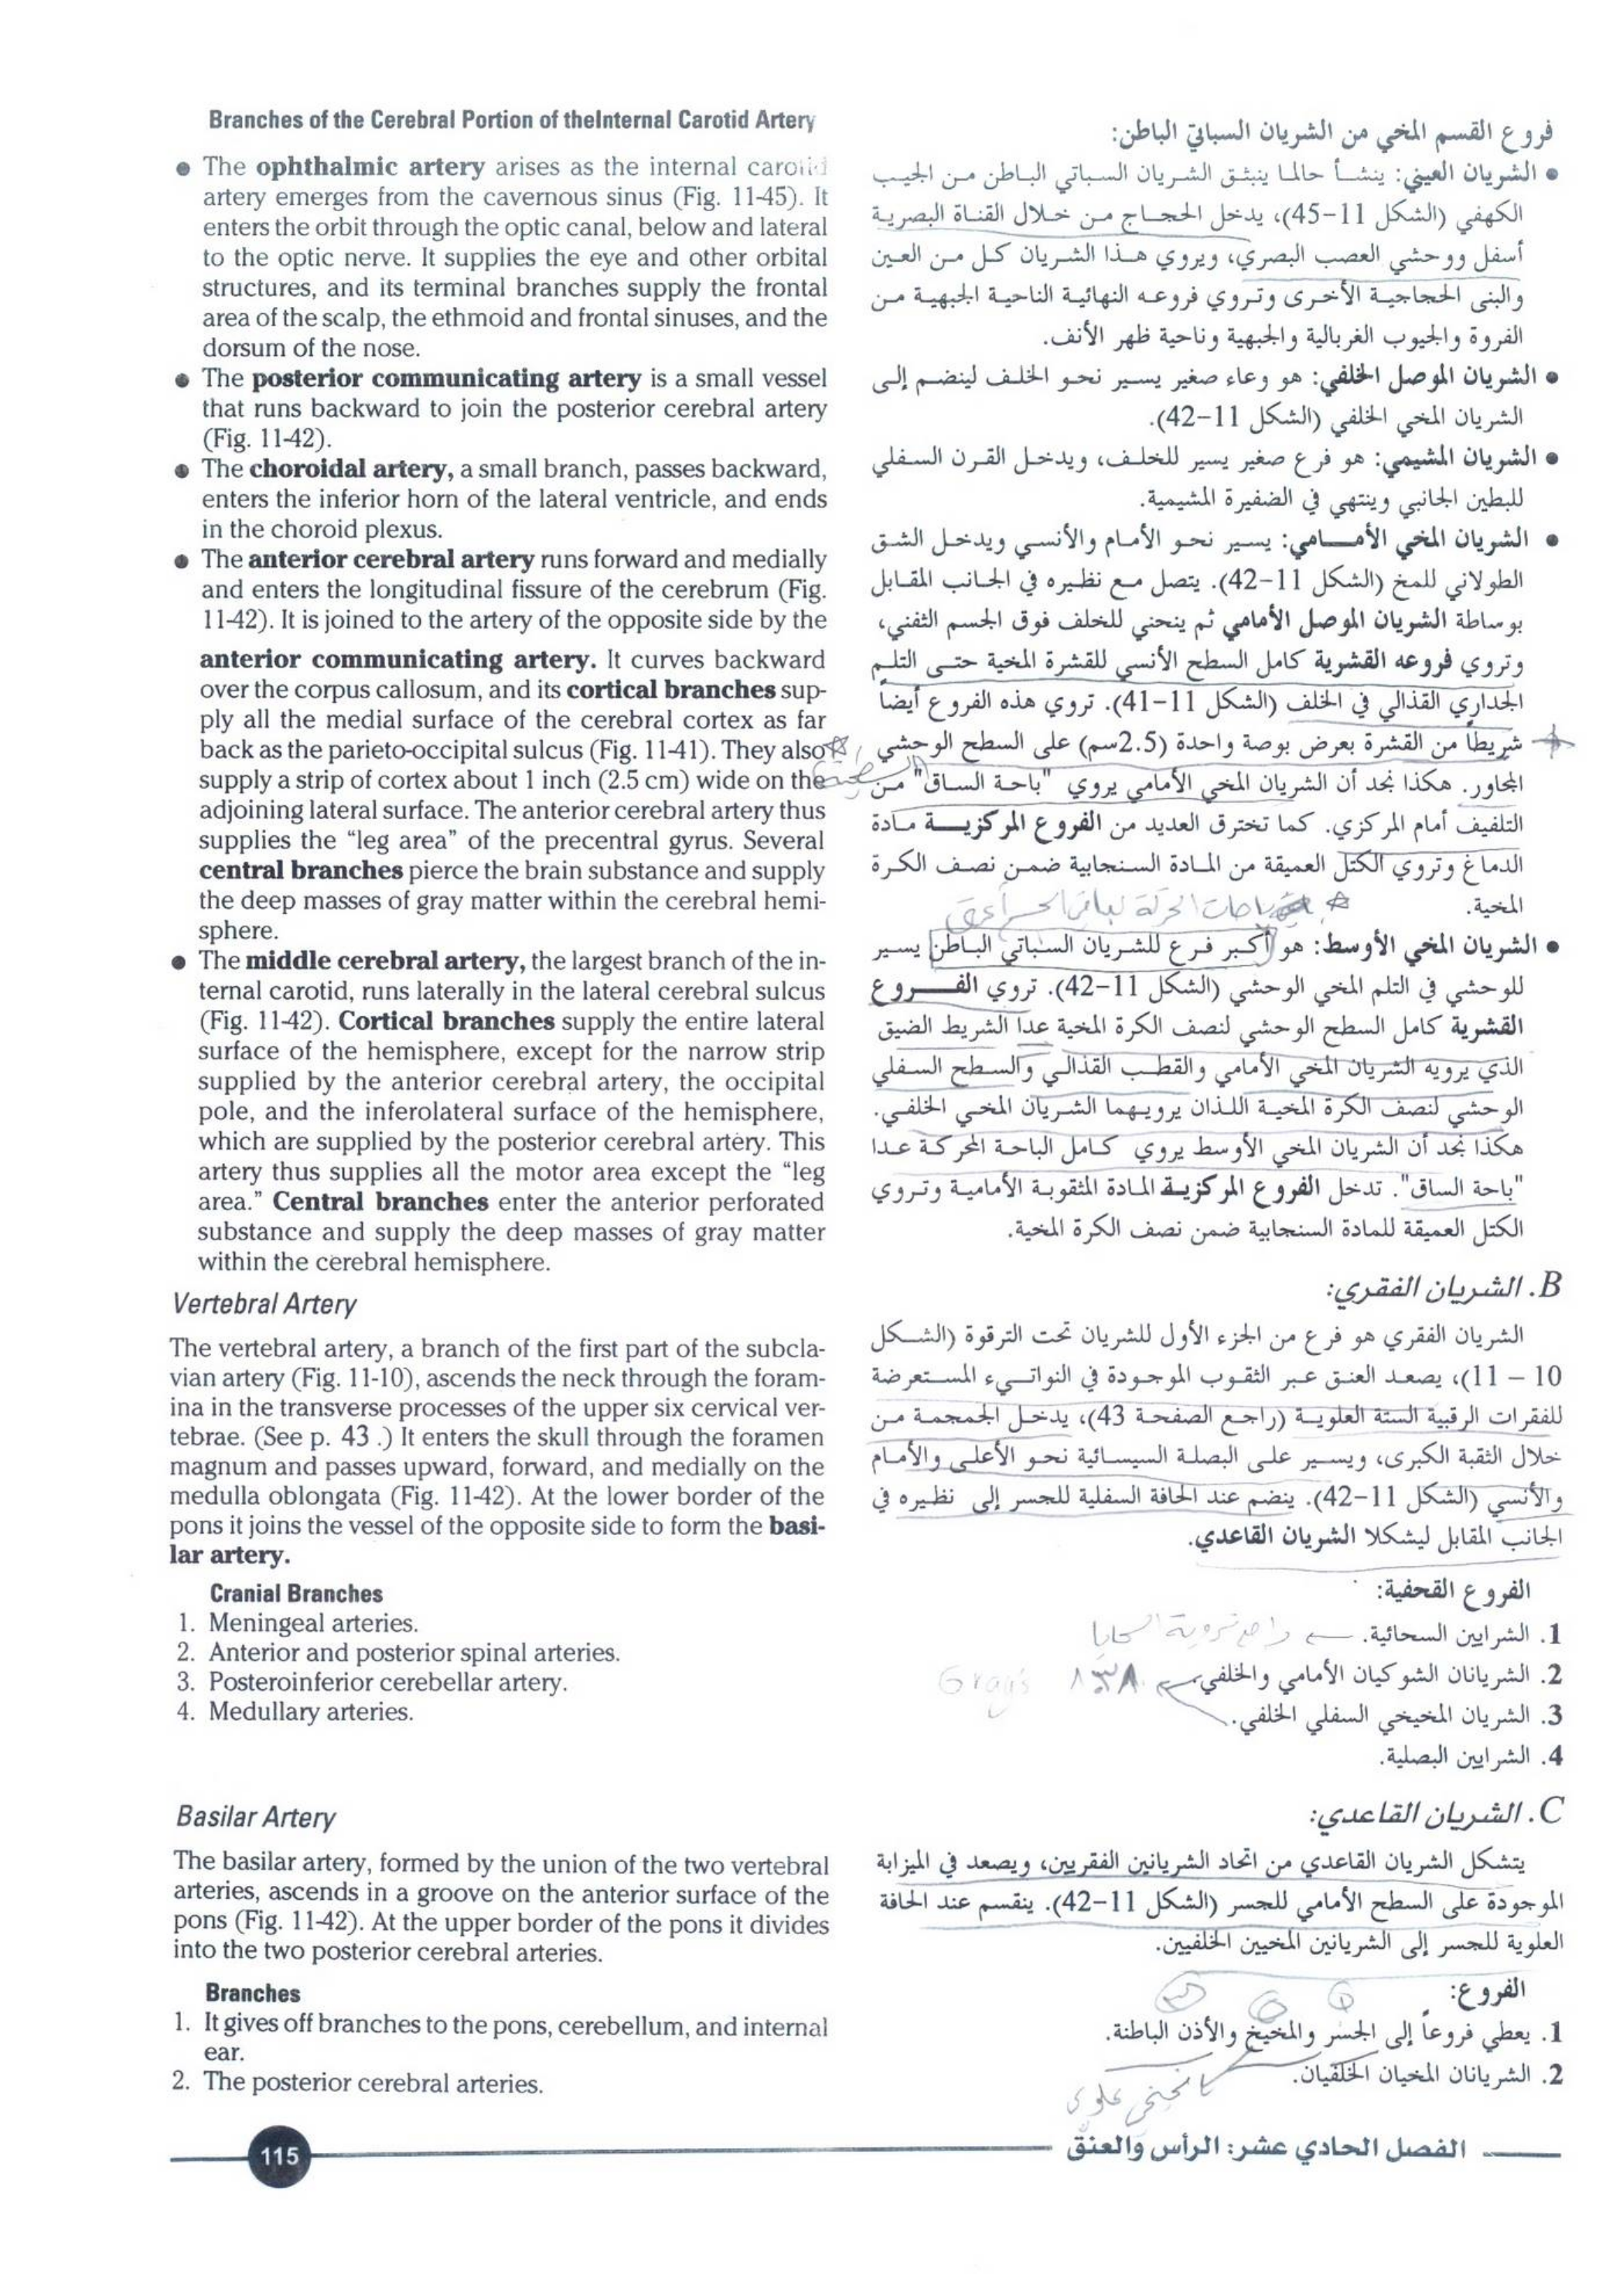 Branches of the Cerebral Portion of theInternal Carotid Artery
● The ophthalmic artery arises as the internal carotid
artery emerges from the cavernous sinus (Fig. 11-45). It
enters the orbit through the optic canal, below and lateral
to the optic nerve. It supplies the eye and other orbital
structures, and its terminal branches supply the frontal
area of the scalp, the ethmoid and frontal sinuses, and the
dorsum of the nose.
● The posterior communicating artery is a small vessel
that runs backward to join the posterior cerebral artery
(Fig. 11-42).
● The choroidal artery, a small branch, passes backward,
enters the inferior horn of the lateral ventricle, and ends
in the choroid plexus.
● The anterior cerebral artery runs forward and medially
and enters the longitudinal fissure of the cerebrum (Fig.
11-42). It is joined to the artery of the opposite side by the
anterior communicating artery. It curves backward
over the corpus callosum, and its cortical branches sup-
ply all the medial surface of the cerebral cortex as far
back as the parieto-occipital sulcus (Fig. 11-41). They also
supply a strip of cortex about 1 inch (2.5 cm) wide on the
adjoining lateral surface. The anterior cerebral artery thus
supplies the “leg area” of the precentral gyrus. Several
central branches pierce the brain substance and supply
the deep masses of gray matter within the cerebral hemi-
sphere.
● The middle cerebral artery, the largest branch of the in-
ternal carotid, runs laterally in the lateral cerebral sulcus
(Fig. 11-42). Cortical branches supply the entire lateral
surface of the hemisphere, except for the narrow strip
supplied by the anterior cerebral artery, the occipital
pole, and the inferolateral surface of the hemisphere,
which are supplied by the posterior cerebral artery. This
artery thus supplies all the motor area except the “leg
area.” Central branches enter the anterior perforated
substance and supply the deep masses of gray matter
within the cerebral hemisphere.
Vertebral Artery
The vertebral artery, a branch of the first part of the subcla-
vian artery (Fig. 11-10), ascends the neck through the foram-
ina in the transverse processes of the upper six cervical ver-
tebrae. (See p. 43 .) It enters the skull through the foramen
magnum and passes upward, forward, and medially on the
medulla oblongata (Fig. 11-42). At the lower border of the
pons it joins the vessel of the opposite side to form the basi-
lar artery.
Cranial Branches
1. Meningeal arteries.
2. Anterior and posterior spinal arteries.
3. Posteroinferior cerebellar artery.
4. Medullary arteries.
Basilar Artery
The basilar artery, formed by the union of the two vertebral
arteries, ascends in a groove on the anterior surface of the
pons (Fig. 11-42). At the upper border of the pons it divides
into the two posterior cerebral arteries.
Branches
1. It gives off branches to the pons, cerebellum, and internal
ear.
2. The posterior cerebral arteries.
فروع القسم المخي من الشريان السباتي الباطن:
● الشريان العيني: ينشأ حالما ينبثق الشريان السباتي الباطن من الجيب
الكهفي (الشكل 11-45)، يدخل الحجاج من خلال القناة البصرية
أسفل ووحشي العصب البصري، ويروي هذا الشريان كل من العين
والبنى الحجاجية الأخرى وتروي فروعه النهائية الناحية الجبهية من
الفروة والجيوب الغربالية والجبهية وناحية ظهر الأنف.
● الشريان الموصل الخلفي: هو وعاء صغير يسير نحو الخلف لينضم إلى
الشريان المخي الخلفي (الشكل 11-42).
● الشريان المشيمي: هو فرع صغير يسير للخلف، ويدخل القرن السفلي
للبطين الجانبي وينتهي في الضفيرة المشيمية.
● الشريان المخي الأمامي: يسير نحو الأمام والأنسي ويدخل الشق
الطولاني للمخ (الشكل 11-42). يتصل مع نظيره في الجانب المقابل
بوساطة الشريان الموصل الأمامي ثم ينحني للخلف فوق الجسم الثفني،
وتروي فروعه القشرية كامل السطح الأنسي للقشرة المخية حتى التلم
الجداري القذالي في الخلف (الشكل 11-41). تروي هذه الفروع أيضاً
شريطاً من القشرة بعرض بوصة واحدة (2.5سم) على السطح الوحشي
المجاور. هكذا نجد أن الشريان المخي الأمامي يروي "باحة الساق" من
التلفيف أمام المركزي. كما تخترق العديد من الفروع المركزية مادة
الدماغ وتروي الكتل العميقة من المادة السنجابية ضمن نصف الكرة
المخية.
● الشريان المخي الأوسط: هو أكبر فرع للشريان السباتي الباطن يسير
للوحشي في التلم المخي الوحشي (الشكل 11-42). تروي الفروع
القشرية كامل السطح الوحشي لنصف الكرة المخية عدا الشريط الضيق
الذي يرويه الشريان المخي الأمامي والقطب القذالي والسطح السفلي
الوحشي لنصف الكرة المخية اللذان يرويهما الشريان المخي الخلفي.
هكذا نجد أن الشريان المخي الأوسط يروي كامل الباحة المحركة عدا
"باحة الساق". تدخل الفروع المركزية المادة المثقوبة الأمامية وتروي
الكتل العميقة للمادة السنجابية ضمن نصف الكرة المخية.
B. الشريان الفقري:
الشريان الفقري هو فرع من الجزء الأول للشريان تحت الترقوة (الشكل
10 – 11)، يصعد العنق عبر الثقوب الموجودة في النواتيء المستعرضة
للفقرات الرقبية الستة العلوية (راجع الصفحة 43)، يدخل الجمجمة من
خلال الثقبة الكبرى، ويسير على البصلة السيسائية نحو الأعلى والأمام
والأنسي (الشكل 11-42). ينضم عند الحافة السفلية للجسر إلى نظيره في
الجانب المقابل ليشكلا الشريان القاعدي.
الفروع القحفية:
1. الشرايين السحائية.
2. الشريانان الشوكيان الأمامي والخلفي. ٨٣٨ Gray's
3. الشريان المخيخي السفلي الخلفي.
4. الشرايين البصلية.
C. الشريان القاعدي:
يتشكل الشريان القاعدي من اتحاد الشريانين الفقريين، ويصعد في الميزابة
الموجودة على السطح الأمامي للجسر (الشكل 11-42). ينقسم عند الحافة
العلوية للجسر إلى الشريانين المخيين الخلفيين.
الفروع:
1. يعطي فروعاً إلى الجسر والمخيخ والأذن الباطنة.
2. الشريانان المخيان الخلفيان.
115
الفصل الحادي عشر: الرأس والعنق